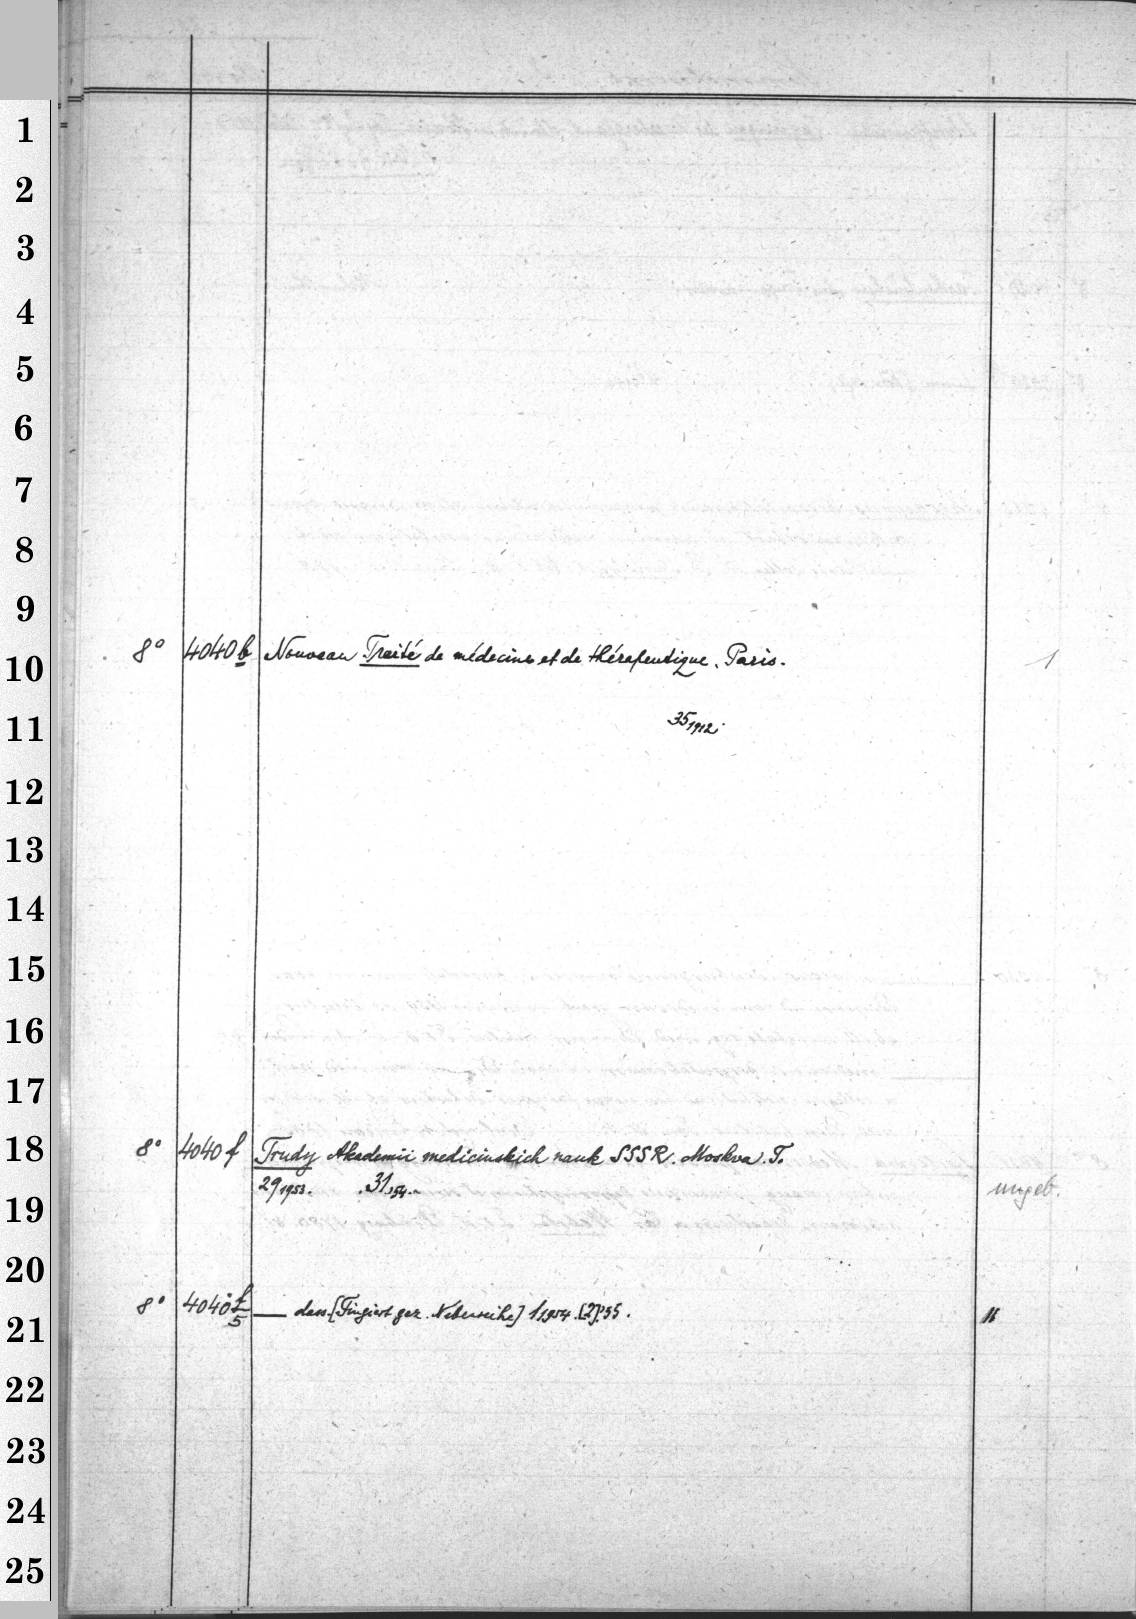 1
2
3
4
5
6
7
8
9
8° 4040b Nouveau Traité de médecine et de thérapeutique. Paris. 1
10
35 1912.
11
12
13
14
15
16
17
18
8° 4040 f Trudy Akademii medicinskich nauk SSSR. Moskva. T.
29 1953. 31 54. ungeb.
19
20
8° 4040 f/5 — dass. [Fingiert gez. Nebenreihe] 1 1954. [2] 55. 11
21
22
23
24
25